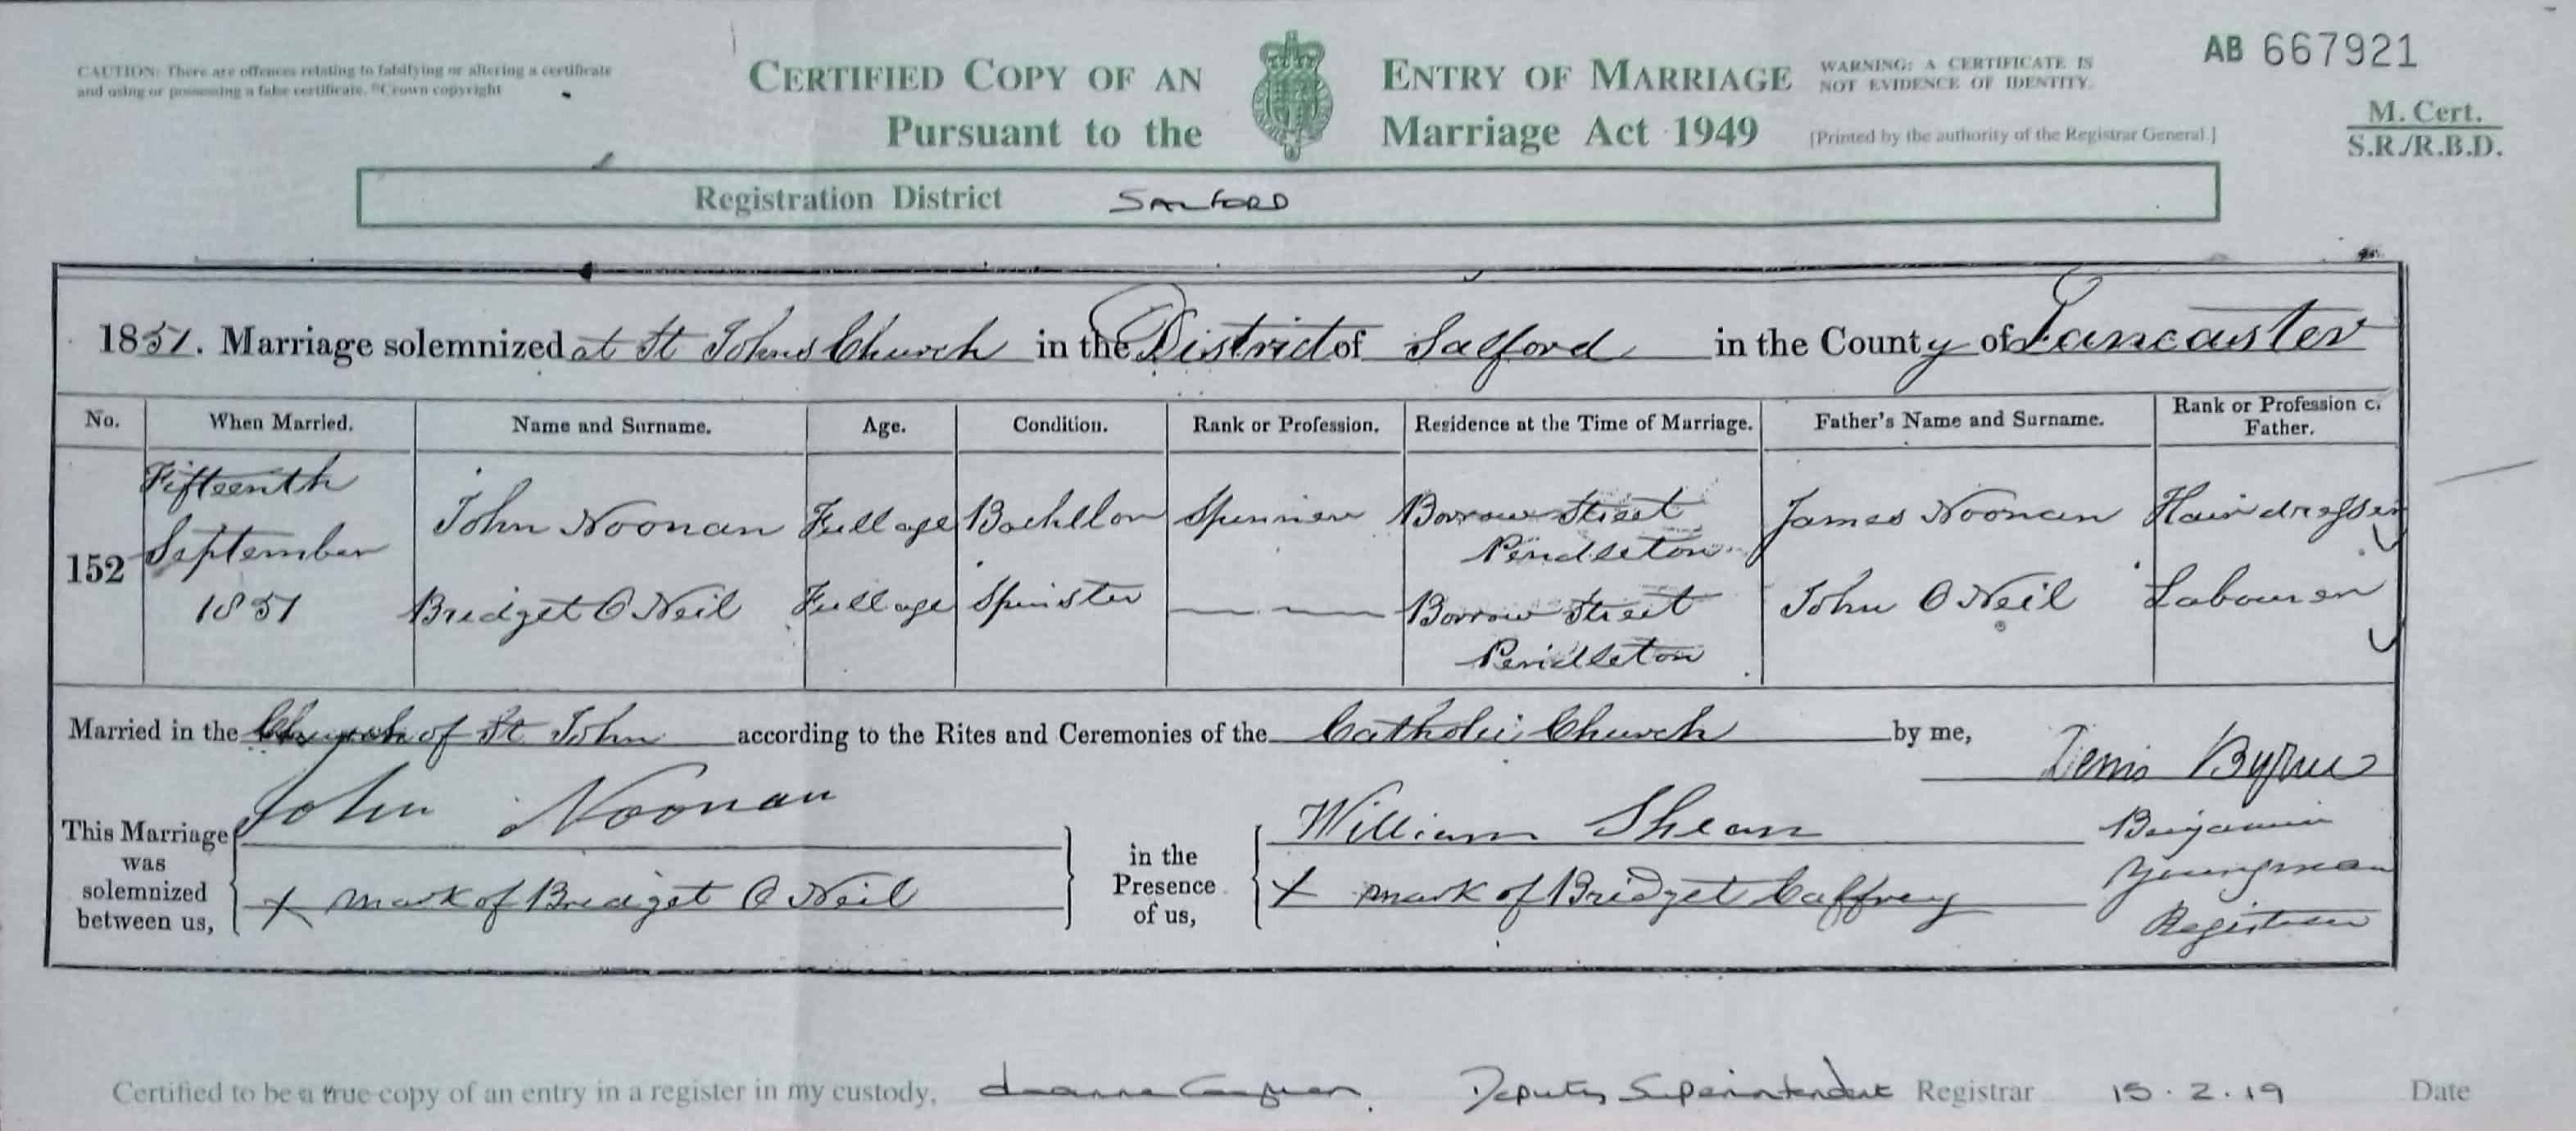 CAUTION: There are offences relating to falsifying or altering a certificate
and using or possessing a false certificate. ©Crown copyright
CERTIFIED COPY OF AN ENTRY OF MARRIAGE
Pursuant to the Marriage Act 1949
WARNING: A CERTIFICATE IS
NOT EVIDENCE OF IDENTITY.
[Printed by the authority of the Registrar General.]
AB 667921
M. Cert.
S.R./R.B.D.
Registration District SALFORD
1851. Marriage solemnized at St Johns Church in the District of Salford in the County of Lancaster
No. When Married. Name and Surname. Age. Condition. Rank or Profession. Residence at the Time of Marriage. Father's Name and Surname. Rank or Profession of
Father.
152
Fifteenth
September
1851
John Noonan Full age Bachellor Spinner Borrow Street
Pendleton
James Noonan Hairdresser
Bridget O Neil Full age Spinster Borrow Street
Pendleton
John O Neil Labourer
Married in the Church of St John according to the Rites and Ceremonies of the Catholic Church by me,
Denis Byrne
This Marriage
was
solemnized
between us,
John Noonan
X mark of Bridget O Neil
in the
Presence
of us,
William Shean
X mark of Bridget Caffrey
Benjamin
Youngman
Registrar
Certified to be a true copy of an entry in a register in my custody, Deputy Superintendent Registrar 15.2.19 Date